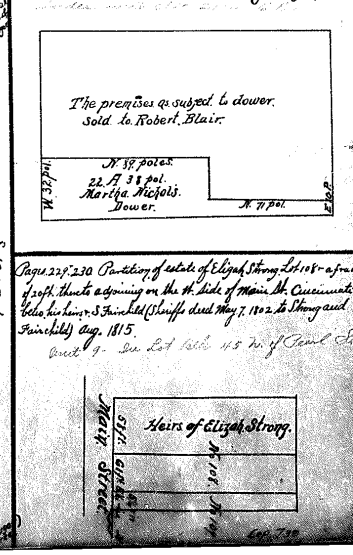 The premises as subject to dower.
sold to Robert Blair.
N. 39 poles.
22 A 38 pol.
Martha Nichols.
Dower.
W 32 pol.
N. 71 pol.
E 10 P.
Pages. 229-230 Partition of estate of Elijah Strong Lot 108 - a frac
of 20 ft. thereto adjoining on the W. side of Main St. Cincinnati
heirs & S. Fairchild (Sheriffs deed May 7, 1802 to Strong and
Fairchild) Aug. 1815.
45 N. of Pearl
Heirs of Elizah Strong.
Main Street
53 ft.
N. 108